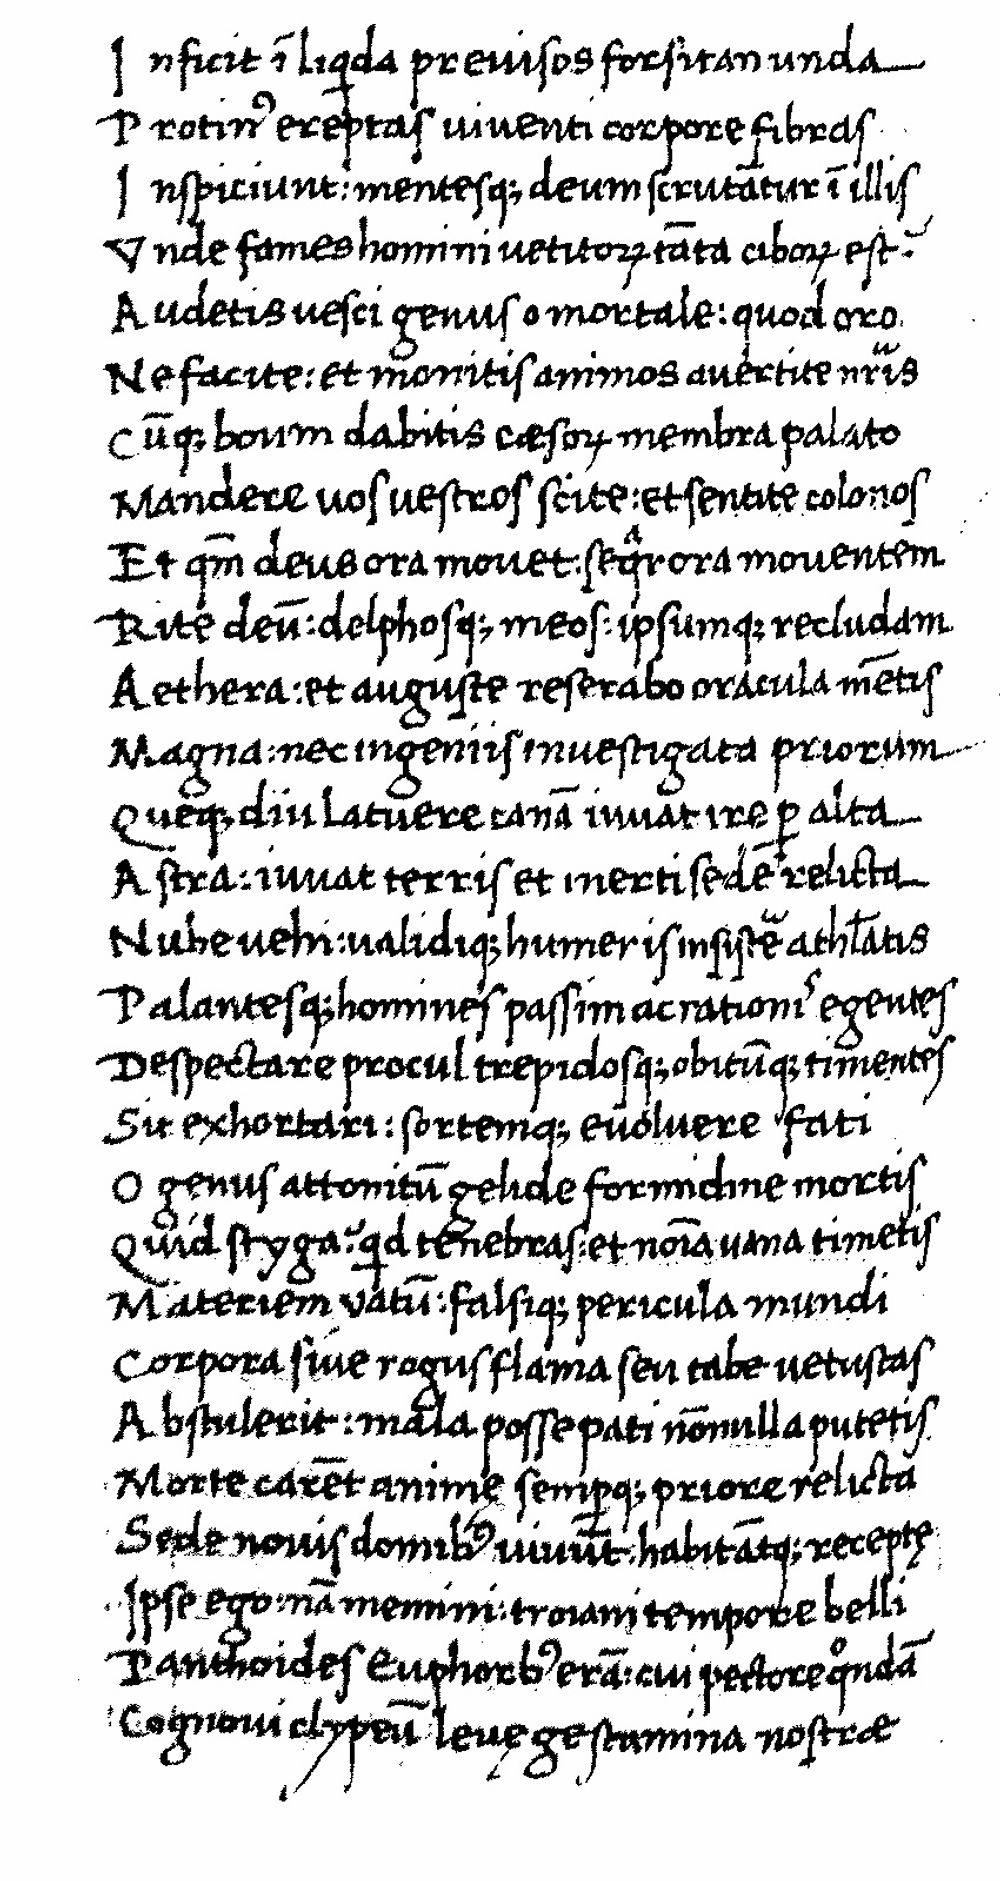 I nficit ī liqda preuisos forsitan unda
P rotinꝰ ereptas uiuenti corpore fibras
I nspiciunt: mentesq; deum scrutātur ī illis
V nde fames homini uetitoꝝ tāta ciboꝝ est?
A udetis uesci genus o mortale: quod oro
Ne facite: et monitis animos auertite nr̃is
Cūq; boum dabitis cæsoꝝ membra palato
Mandere uos uestros scite: et sentite colonos
Et qm̄ deus ora mouet: seqᵃr ora mouentem
Rite deū: delphosq; meos: ipsumq; recludam
Aethera: et auguste reserabo oracula mētis
Magna: nec ingeniis inuestigata priorum
Queq; diu latuere canā iuuat ire ꝑ alta
A stra: iuuat terris et inerti sede relicta
Nube uehi: ualidiq; humeris insistẽ athlātis
Palantesq; homines passim ac rationis egentes
Despectare procul trepidosq; obitūq; timentes
Sic exhortari: sortemq; euoluere fati
O genus attonitū gelide formidine mortis
Quid styga? qd tenebras: et noīa uana timetis
Materiem vatū: falsiq; pericula mundi
Corpora siue rogus flama seu tabe uetustas
A bstulerit: mala posse pati nōnulla putetis
Morte carēt animę semꝑq; priore relicta
Sede nouis domibꝰ uiuūt: habitātq; receptę
Ipse ego: nā memini: troiani tempore belli
Panthoides Euphorbꝰ erā: cui pectore qͦndā
Cognoui clypeū leuę gestamina nostræ